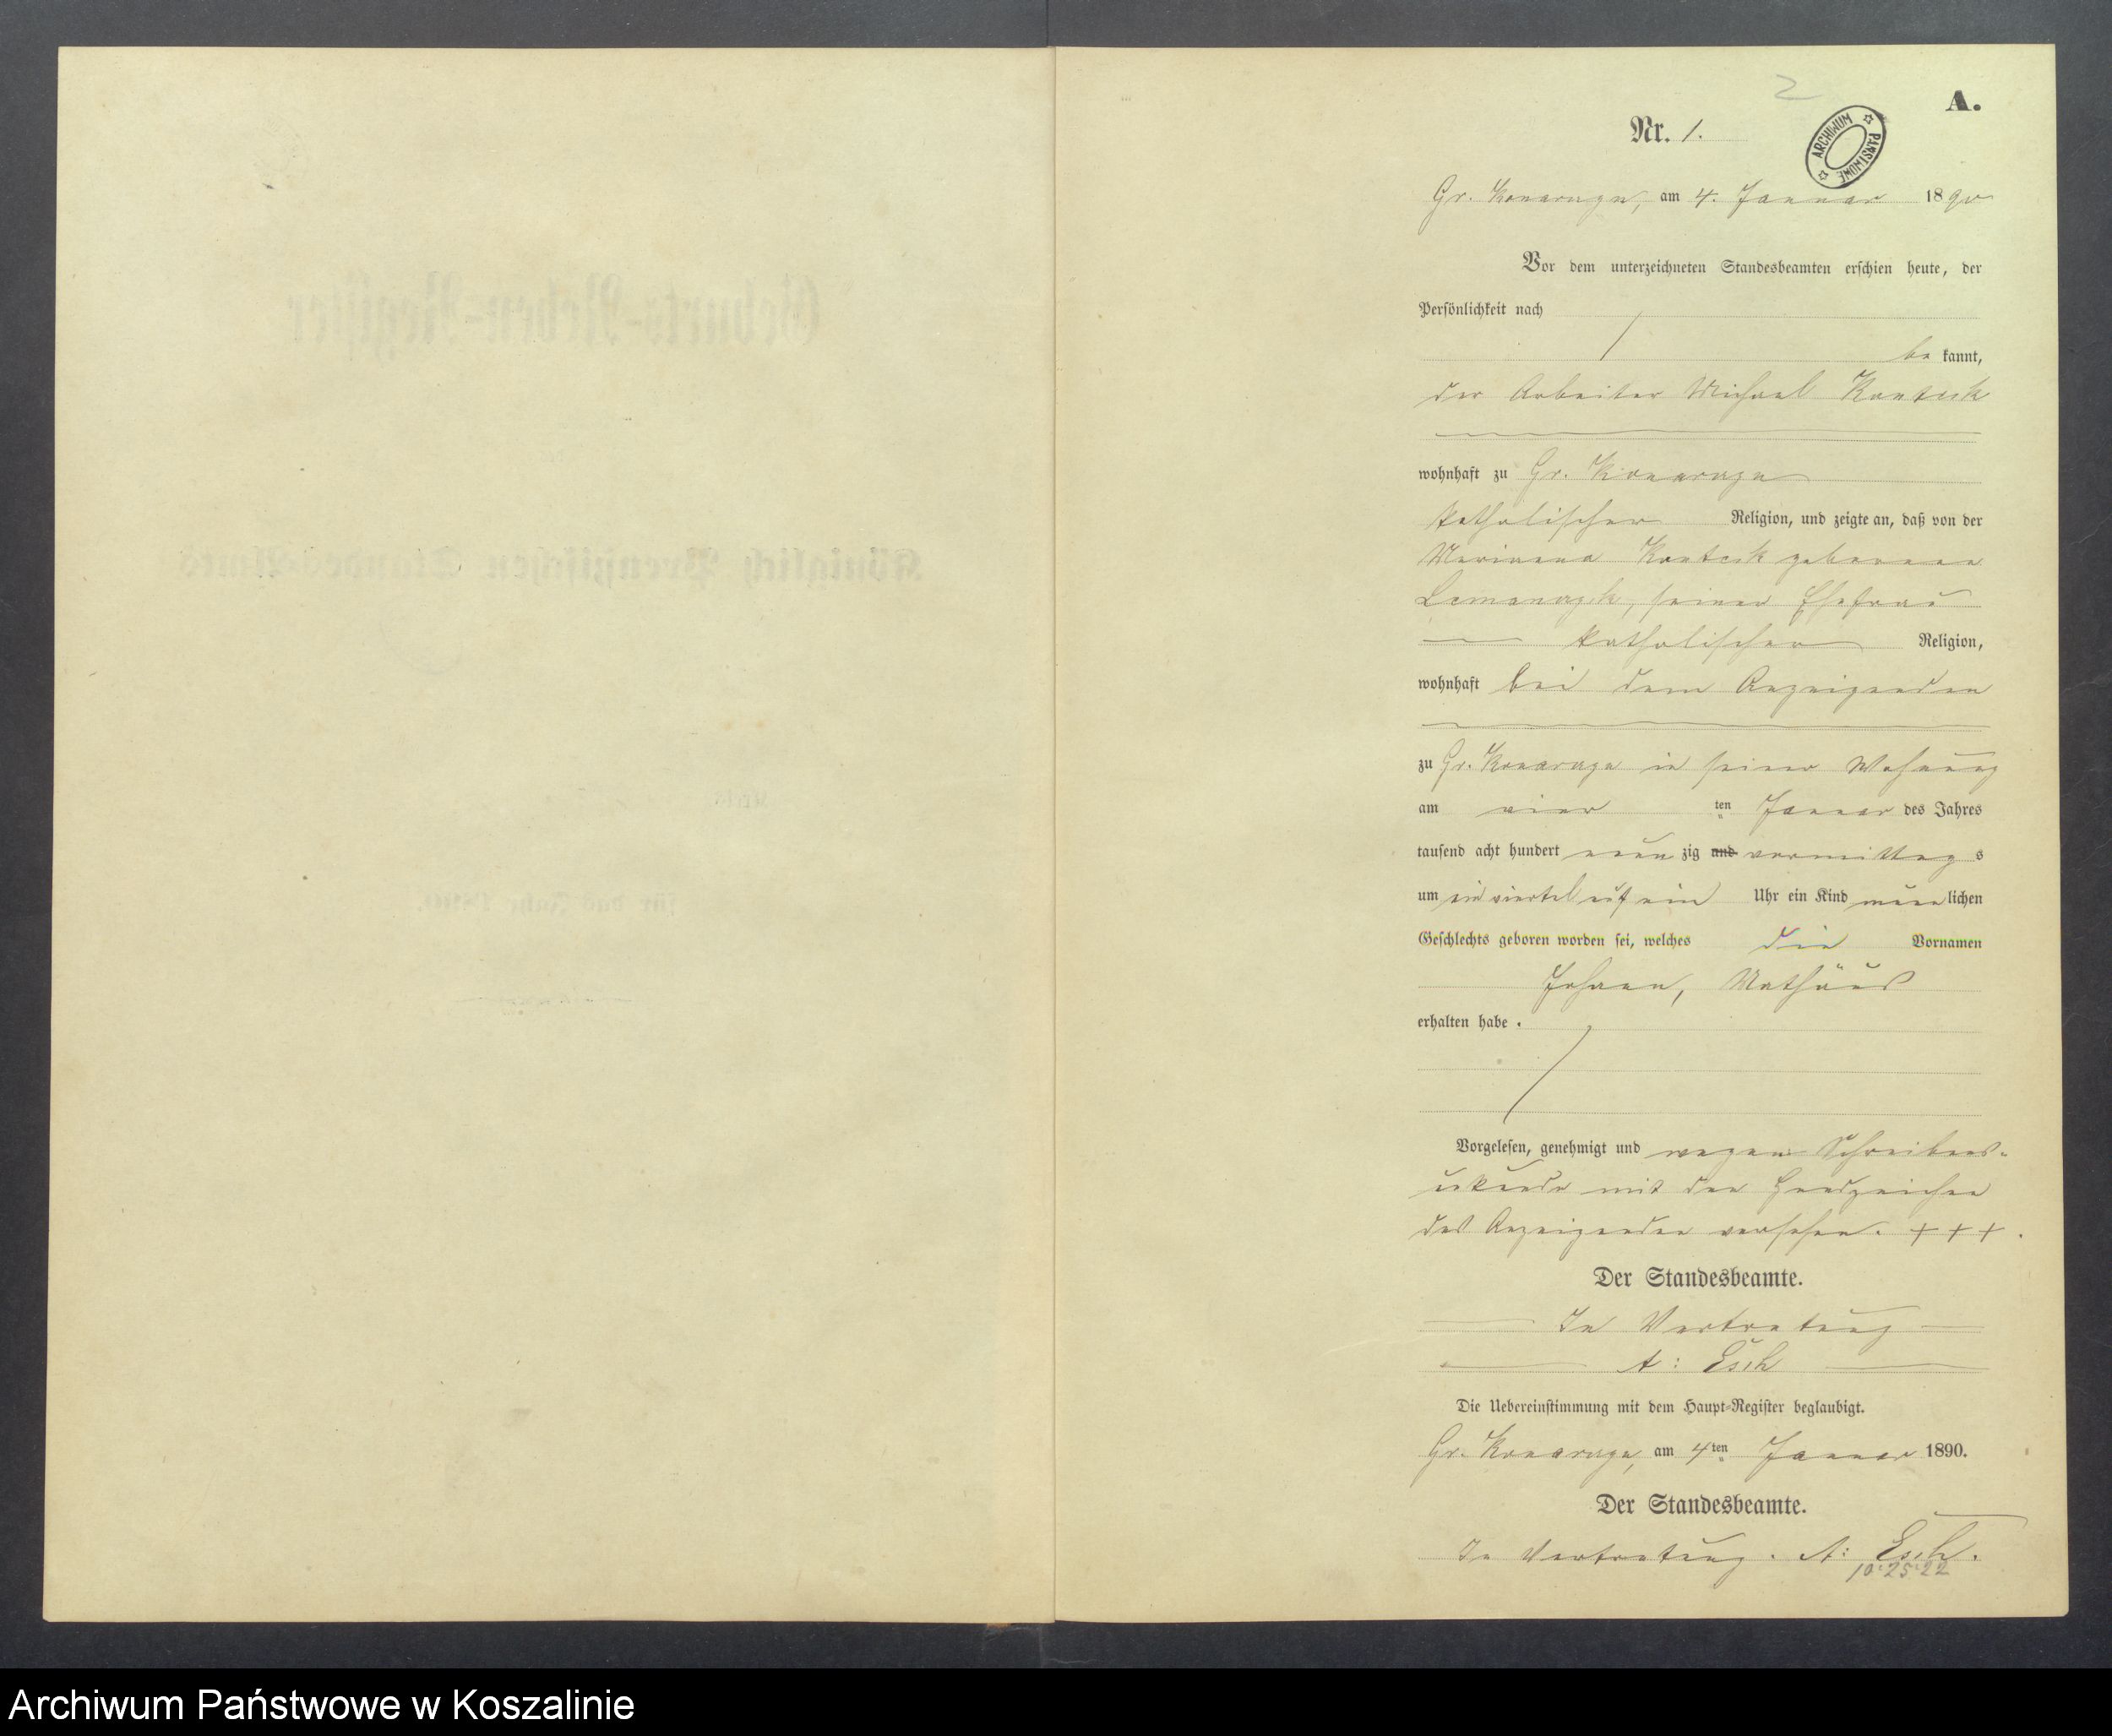 Geburts-Neben-Register
Königlich Preußischen Standes-Amts
Kreis
für das Jahr 1890.
2
A.
Nr. 1.
ARCHIWUM PAŃSTWOWE
Gr. Konarczyn, am 4. Januar 1890
Vor dem unterzeichneten Standesbeamten erschien heute, der
Persönlichkeit nach
be kannt,
der Arbeiter Michael
wohnhaft zu Gr. Konarczyn
katholischer Religion, und zeigte an, daß von der
Marianna geborene
seiner Ehefrau
katholischer Religion,
wohnhaft bei dem Anzeigenden
zu Gr. Konarczyn in seiner Wohnung
am vier ten Januar des Jahres
tausend acht hundert neun zig und vormittag s
um ein viertel auf ein Uhr ein Kind männ lichen
Geschlechts geboren worden sei, welches die Vornamen
Johann, Mathäus
erhalten habe.
Vorgelesen, genehmigt und wegen Schreibens-
unkunde mit den Handzeichen
des Anzeigenden versehen. +++.
Der Standesbeamte.
In Vertretung
A: Esch
Die Uebereinstimmung mit dem Haupt-Register beglaubigt.
Gr. Konarczyn, am 4ten Januar 1890.
Der Standesbeamte.
In Vertretung. A: Esch.
10:25:22
Archiwum Państwowe w Koszalinie